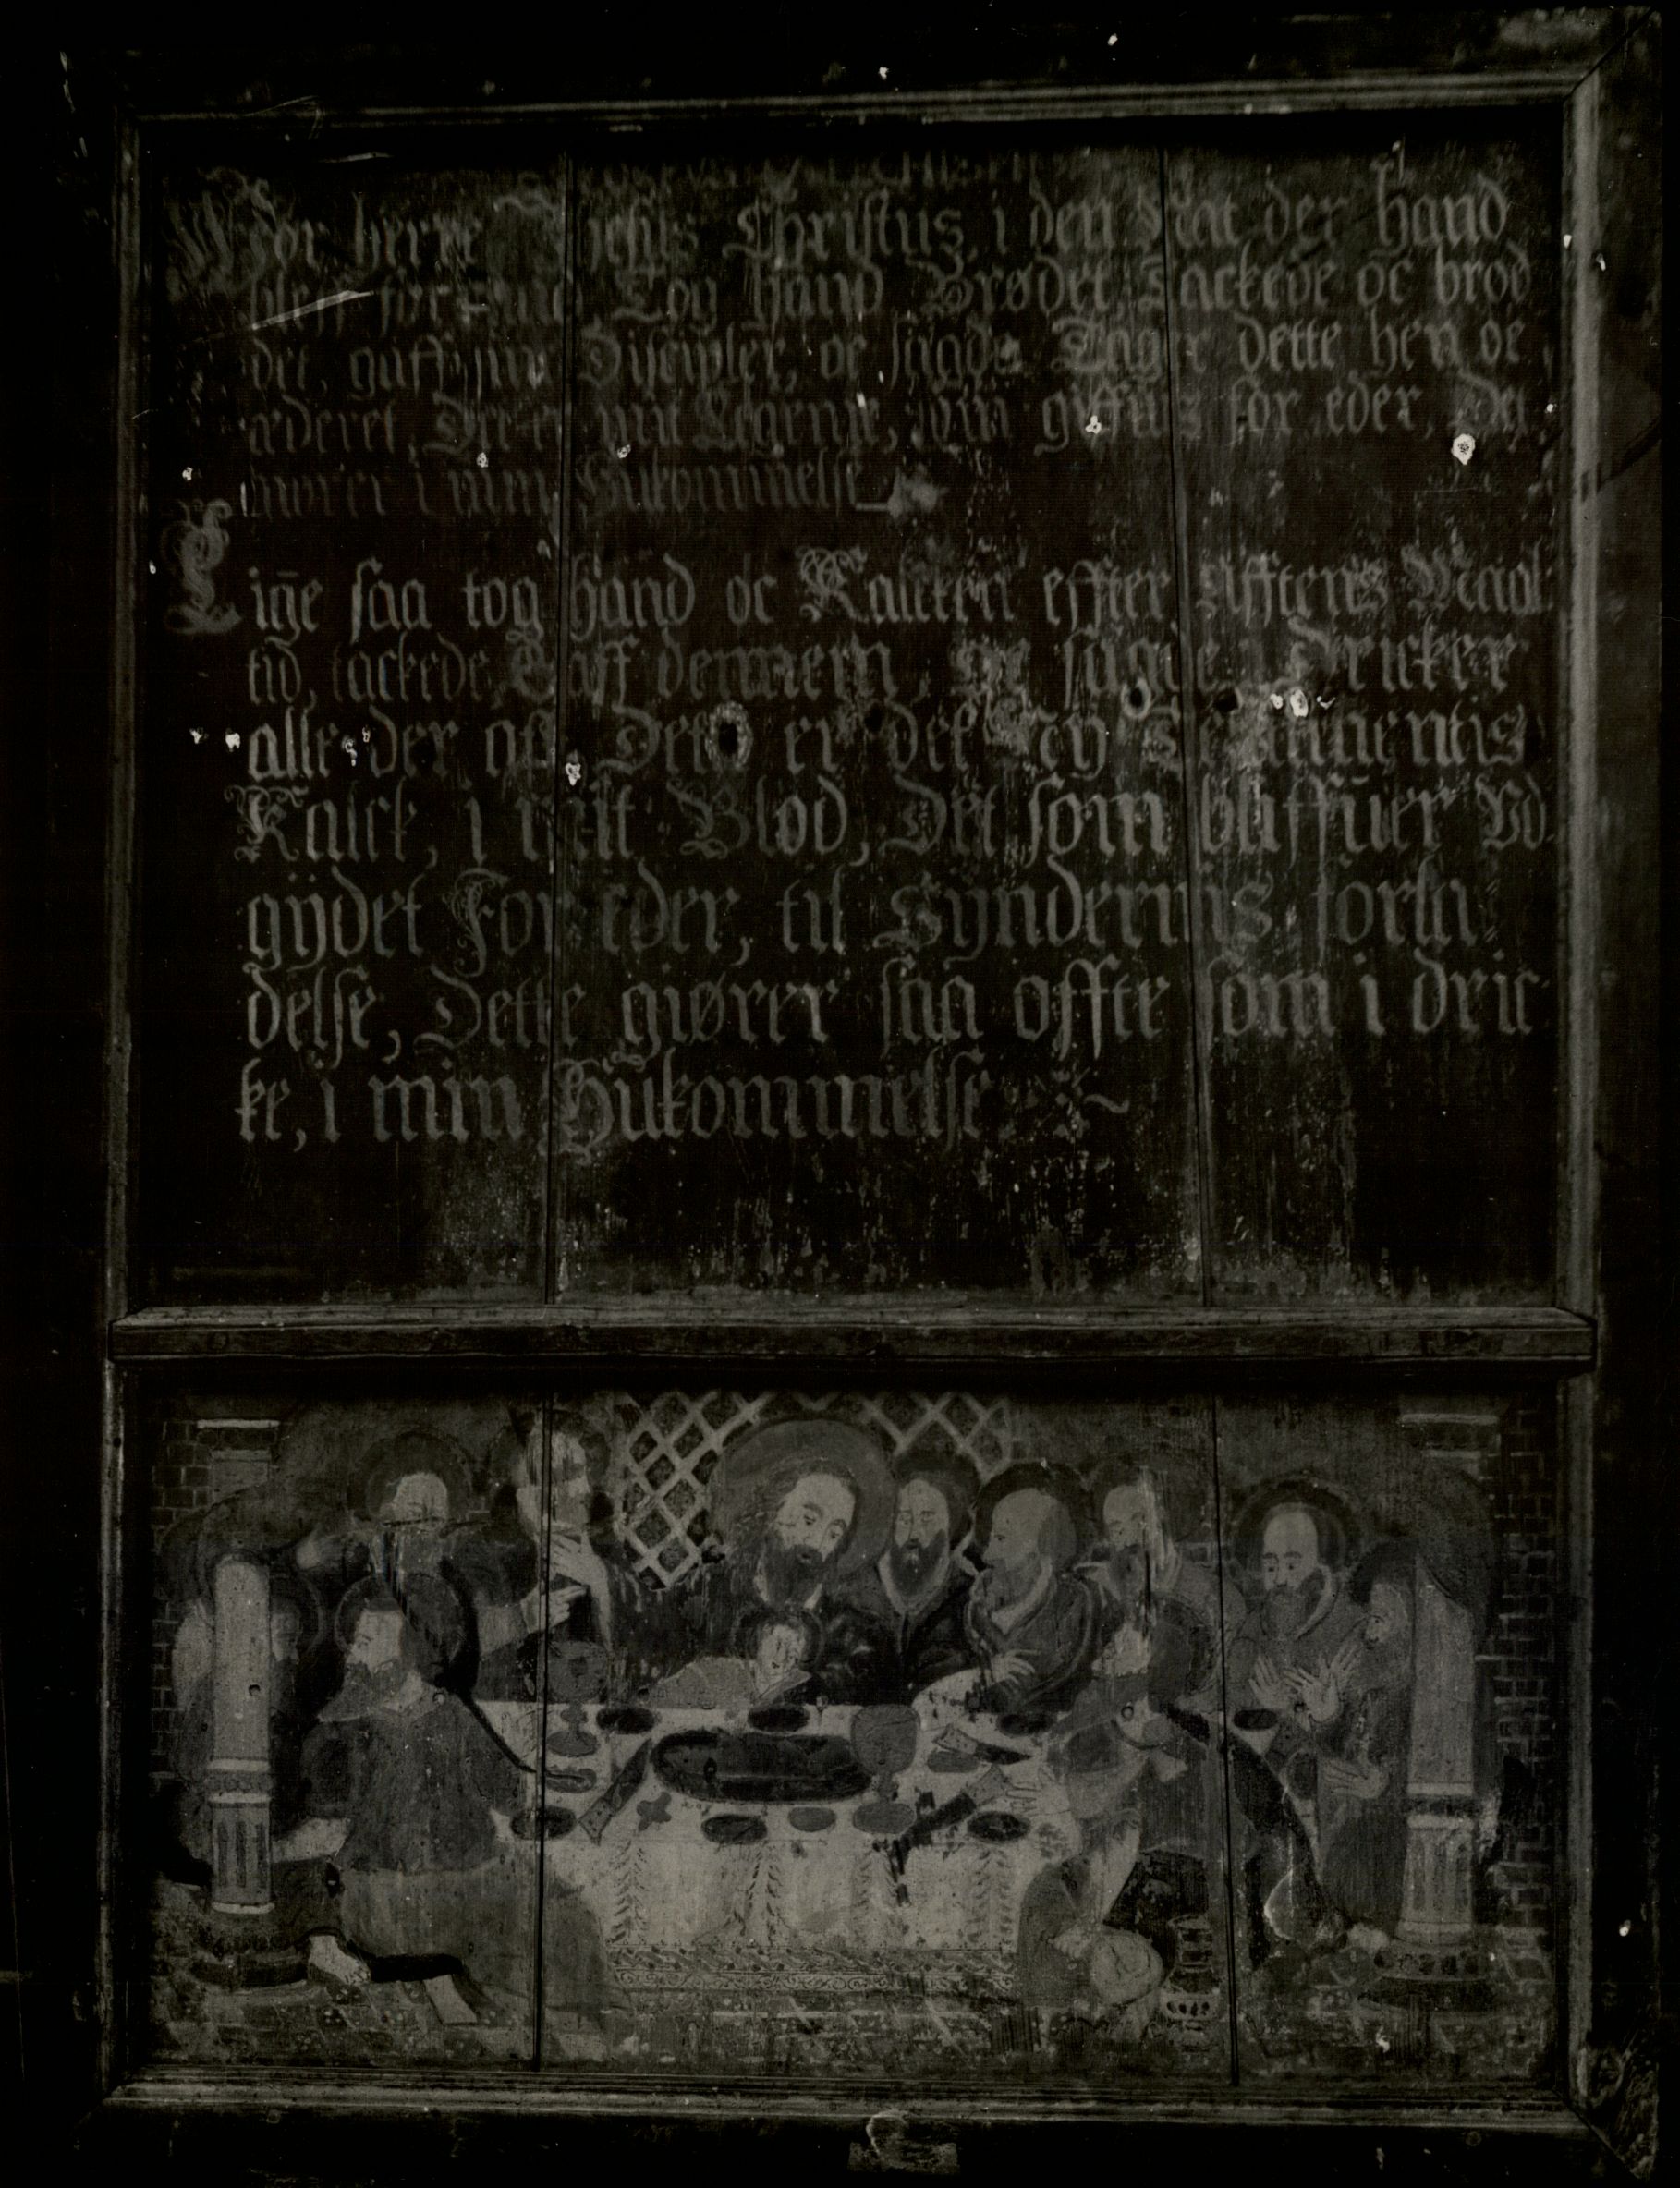 Vor herre Jhesus Christus, i den Nat der hand
bleff for Raad Tog hand Brødet Tackede oc brød
det, gaff sine Discipler, oc sagde Tager dette hen oc
æderet, Det er mit Legeme, som giffuis for eder, Det
giører i min Hukommelse
Lige saa tog hand oc Kalcken effter Afftens Maal
tid, tackede, Gaff dennem, oc sagde, Dricker
alle der aff Det er det Ny Testamentis
Kalck, i mit Blod, Det som bliffuer Vd
gydet For eder, til Syndernis forla
delse, Dette giører saa offte som i dric
ke, i min Hukommelse